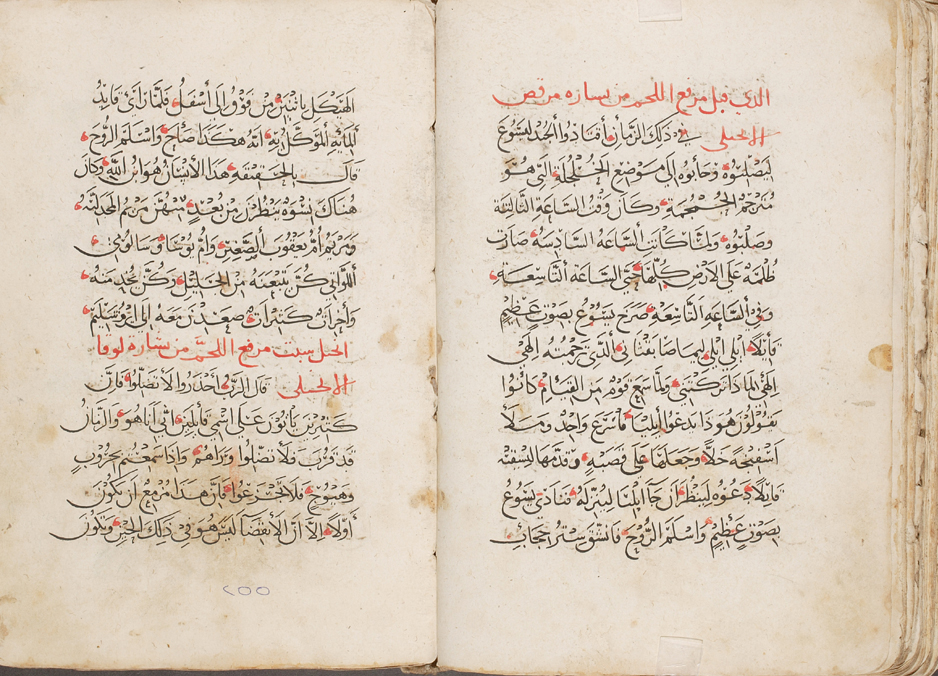 الذي قبل مرفع اللحم من بشاره مرقص
الانجيلي في ذلك الزمان اقتادوا الجند ليسوع
ليصلبوه وجابوه الى موضع الجلجلة التي هو
مترجم الجمجمة وكان وقت الساعة الثالثة
وصلبوه ولما كانت الساعه السادسه صارت
ظلمه على الارض كلها حتى الساعة التاسعه
وفي الساعه التاسعه صرخ يسوع بصوت عظيم
قايلا ايلي ايلي ليما صافقتاني الذي ترجمته الهي
الهي لماذا تركتني ولما سمع قوم من القيام كانوا
يقولون هوذا يدعوا ايليا فاسرع واحد وملا
اسفنجه خلا وجعلها على قصبه وقدمها ليسقيه
قايلا دعوه لينظر ان جا ايليا لينزله فنادى يسوع
بصوت عظيم واسلم الروح فانشق ستر حجاب
الهيكل باثنين من فوق الى أسفل فلما رأى قايد
المايه الموكل به انه هكذا صاح واسلم الروح
قال بالحقيقه هذا الانسان هو ابن الله وكان
هناك نسوه ينظرن من بعد منهن مريم المجدليه
ومريم أم يعقوب الصغير وام يوسا وسالومي
اللواتي كن يتبعنه من الجليل وكن يخدمنه
وأخرات كثيرات صعدن معه الى اروشليم
انجيل سبت مرفع اللحم من بشاره لوقا
الانجيلي قال الرب احذروا لا تضلوا فان
كثيرين ياتون على اسمي قايلين اني انا هو والزمان
قد قرب فلا تضلوا وراهم واذا سمعتم بحروب
وهيوج فلا تجزعوا فان هذا مزمع ان يكون
أولا الا ان الانقضا ليس هو في ذلك الحين وتكون
٢٥٥